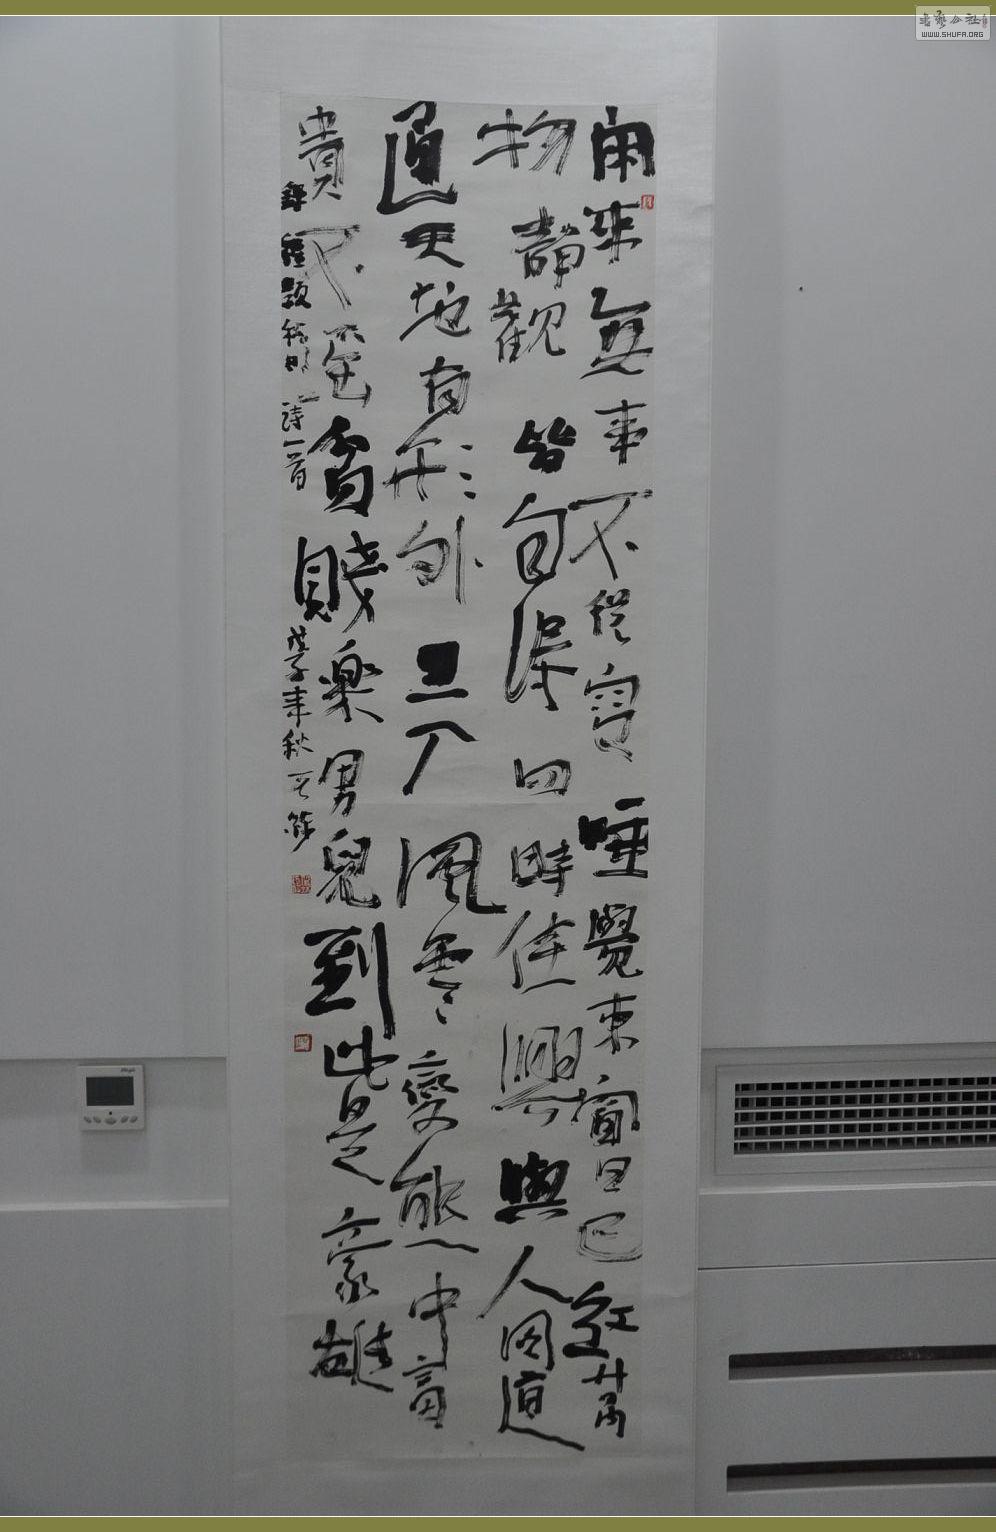 閑来無事不從容睡覺東窗日已紅萬
物靜觀皆自得四時佳興與人同道
通天地有形外思入風雲變態中富
貴不淫貧賤樂男兒到此是豪雄
錄程顥秋日詩一首戊子年秋
书艺公社
WWW.SHUFA.ORG